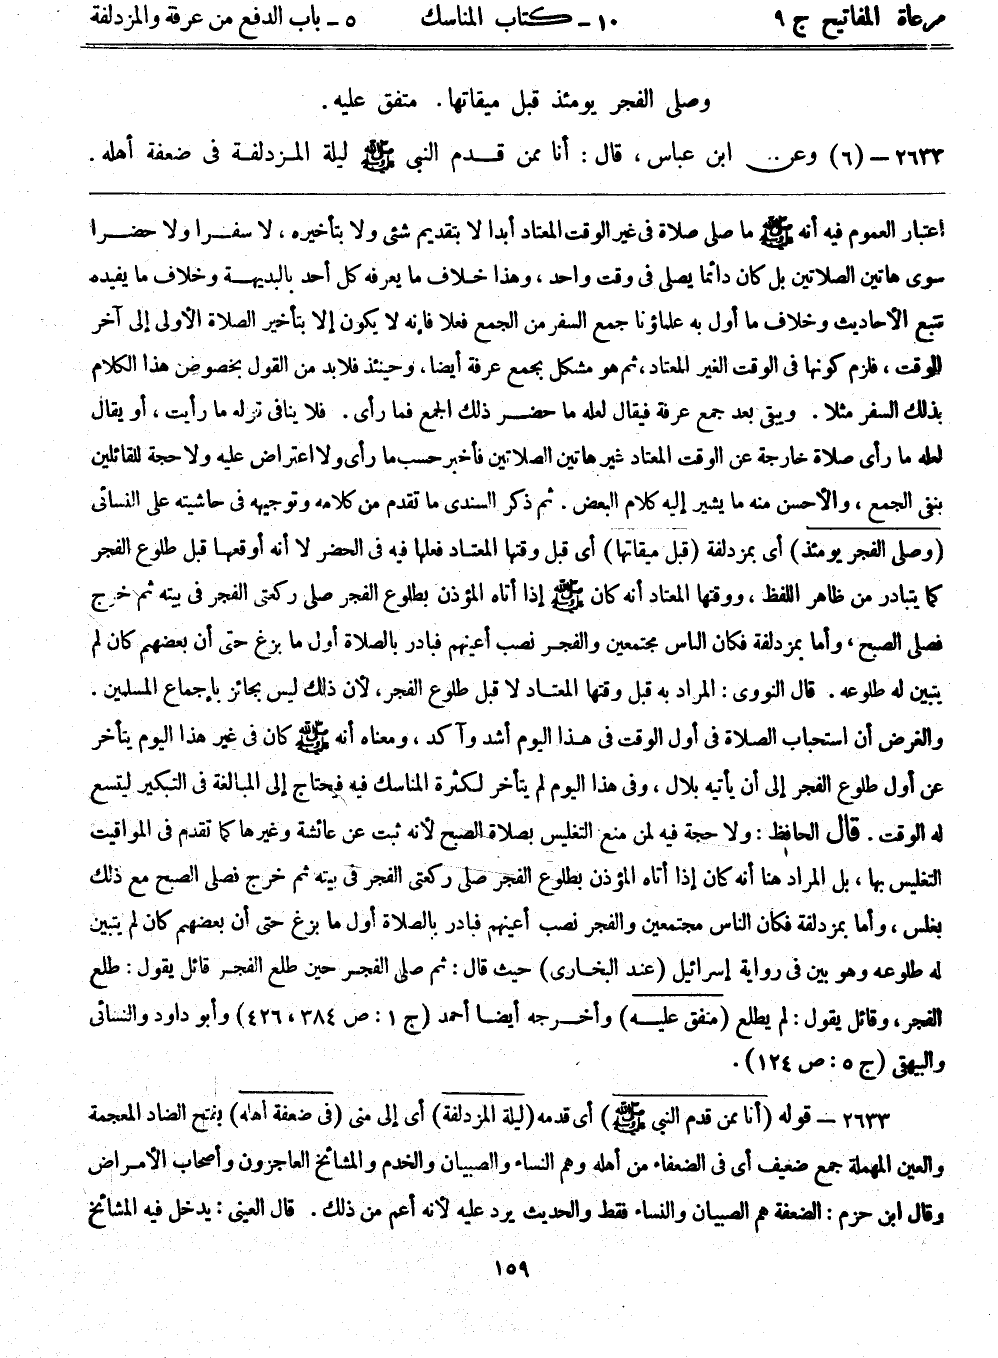 مرعاة المفاتيح ج ٩ ١٠ - كتاب المناسك ٥ - باب الدفع من عرفة والمزدلفة
وصلى الفجر يومئذ قبل ميقاتها. متفق عليه.
٢٦٣٣ - (٦) وعن ابن عباس، قال: أنا ممن قدم النبى ﷺ ليلة المزدلفة فى ضعفة أهله.
اعتبار العموم فيه أنه ﷺ ما صلى صلاة فى غير الوقت المعتاد أبدا لا بتقديم شئى ولا بتأخيره، لا سفرا ولا حضرا
سوى هاتين الصلاتين بل كان دائما يصلى فى وقت واحد، وهذا خلاف ما يعرفه كل أحد بالبديهة وخلاف ما يفيده
تتبع الأحاديث وخلاف ما أول به علماؤنا جمع السفر من الجمع فعلا فإنه لا يكون إلا بتأخير الصلاة الأولى إلى آخر
الوقت، فلزم كونها فى الوقت الغير المعتاد، ثم هو مشكل بجمع عرفة أيضا، وحينئذ فلابد من القول بخصوص هذا الكلام
بذلك السفر مثلا. ويبقى بعد جمع عرفة فيقال لعله ما حضر ذلك الجمع فما رأى. فلا ينافى تزله ما رأيت، أو يقال
لعله ما رأى صلاة خارجة عن الوقت المعتاد غير هاتين الصلاتين فأخبر حسب ما رأى ولا اعتراض عليه ولا حجة للقائلين
بنفى الجمع، والأحسن منه ما يشير إليه كلام البعض. ثم ذكر السندى ما تقدم من كلامه وتوجيهه فى حاشيته على النسائى
(وصلى الفجر يومئذ) أى بمزدلفة (قبل ميقاتها) أى قبل وقتها المعتاد فعلها فيه فى الحضر لا أنه أوقعها قبل طلوع الفجر
كما يتبادر من ظاهر اللفظ، ووقتها المعتاد أنه كان ﷺ إذا أتاه المؤذن بطلوع الفجر صلى ركعتى الفجر فى بيته ثم خرج
فصلى الصبح، وأما بمزدلفة فكان الناس مجتمعين والفجر نصب أعينهم فبادر بالصلاة أول ما بزغ حتى أن بعضهم كان لم
يتبين له طلوعه. قال النووى: المراد به قبل وقتها المعتاد لا قبل طلوع الفجر، لأن ذلك ليس بجائز بإجماع المسلمين.
والغرض أن استحباب الصلاة فى أول الوقت فى هذا اليوم أشد وآكد، ومعناه أنه ﷺ كان فى غير هذا اليوم يتأخر
عن أول طلوع الفجر إلى أن يأتيه بلال، وفى هذا اليوم لم يتأخر لكثرة المناسك فيه فيحتاج إلى المبالغة فى التبكير ليتسع
له الوقت. قال الحافظ: ولا حجة فيه لمن منع التغليس بصلاة الصبح لأنه ثبت عن عائشة وغيرها كما تقدم فى المواقيت
التغليس بها، بل المراد هنا أنه كان إذا أتاه المؤذن بطلوع الفجر صلى ركعتى الفجر فى بيته ثم خرج فصلى الصبح مع ذلك
بغلس، وأما بمزدلفة فكان الناس مجتمعين والفجر نصب أعينهم فبادر بالصلاة أول ما بزغ حتى أن بعضهم كان لم يتبين
له طلوعه وهو بين فى رواية إسرائيل (عند البخارى) حيث قال: ثم صلى الفجر حين طلع الفجر قائل يقول: طلع
الفجر، وقائل يقول: لم يطلع (متفق عليه) وأخرجه أيضا أحمد (ج ١: ص ٣٨٤، ٤٢٦) وأبو داود والنسائى
والبيهقى (ج ٥: ص ١٢٤).
٢٦٣٣ - قوله (أنا ممن قدم النبى ﷺ) أى قدمه (ليلة المزدلفة) أى إلى منى (فى ضعفة أهله) بفتح الضاد المعجمة
والعين المهملة جمع ضعيف أى فى الضعفاء من أهله وهم النساء والصبيان والخدم والمشائخ العاجزون وأصحاب الأمراض
وقال ابن حزم: الضعفة هم الصبيان والنساء فقط والحديث يرد عليه لأنه أعم من ذلك. قال العينى: يدخل فيه المشائخ
١٥٩